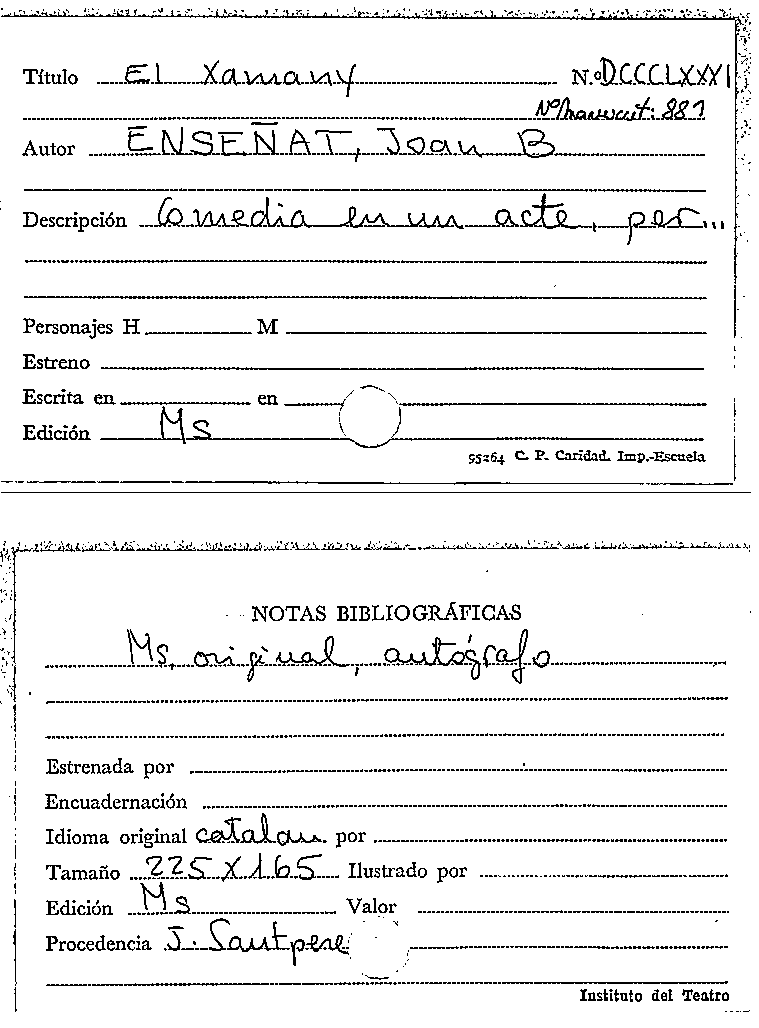 Título El Xamany N.º DCCCLXXXI
Nº manuscrit: 881
Autor ENSEÑAT, Joan B
Descripción Comedia en un acte, per...
Personajes H M
Estreno
Escrita en en
Edición Ms
55264 C. P. Caridad. Imp.-Escuela
NOTAS BIBLIOGRÁFICAS
Ms, original, autógrafo
Estrenada por
Encuadernación
Idioma original catalan por
Tamaño 225 X 165 Ilustrado por
Edición Ms Valor
Procedencia J. Santpere
Instituto del Teatro